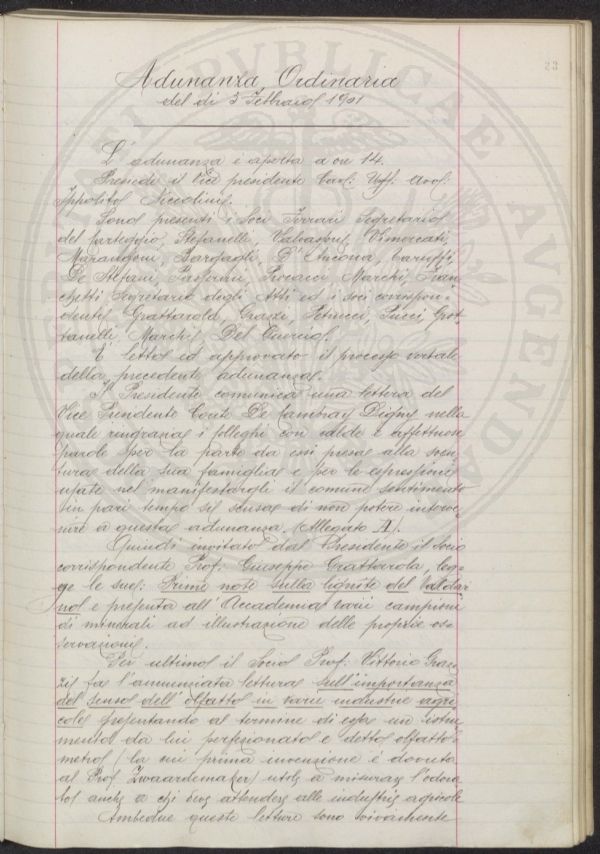 23
Adunanza Ordinaria
del dì 3 Febbraio 1901
L'adunanza è aperta a ore 14.
Presiede il Vice presidente Cav. Uff. Avv.
Ippolito Niccolini.
Sono presenti i Soci Ferrari Segretario
del Carteggio, Stefanelli, Valvassori, Vimercati,
Marangoni, Bargagli, D'Ancona, Caruffi,
De Stefani, Passerini, Procacci, Marchi, Fran-
chetti Segretario degli Atti ed i soci corrispon-
denti Grattarola, Grazzi, Petrucci, Pucci, Got-
tanelli, Marchi, Del Guercio.
E' letto ed approvato il processo verbale
della precedente adunanza.
Il Presidente comunica una lettera del
Vice Presidente Conte De Cambray Digny nella
quale ringrazia i Colleghi con calde e affettuose
parole per la parte da essi presa alla sven-
tura della sua famiglia e per le espressioni
usate nel manifestargli il comune sentimento
in pari tempo si scusa di non potere interve-
nire a questa adunanza. (Allegato A).
Quindi invitato dal Presidente il Socio
corrispondente Prof. Giuseppe Grattarola, leg-
ge le sue: Prime note sulla lignite del Valdar-
no e presenta all'Accademia varii campioni
di minerali ad illustrazione delle proprie os-
servazioni.
Per ultimo il Socio Prof. Vittorio Graz-
zi fa l'annunziata lettura sull'importanza
del senso dell'olfatto in varie industrie agri-
cole presentando al termine di essa un istru-
mento da lui perfezionato e detto olfatto-
metro (la cui prima invenzione è dovuta
al Prof. Zwaardemaker) utile a misurare l'odora-
to anche a chi deve attendere alle industrie agricole
Ambedue queste letture sono vivamente